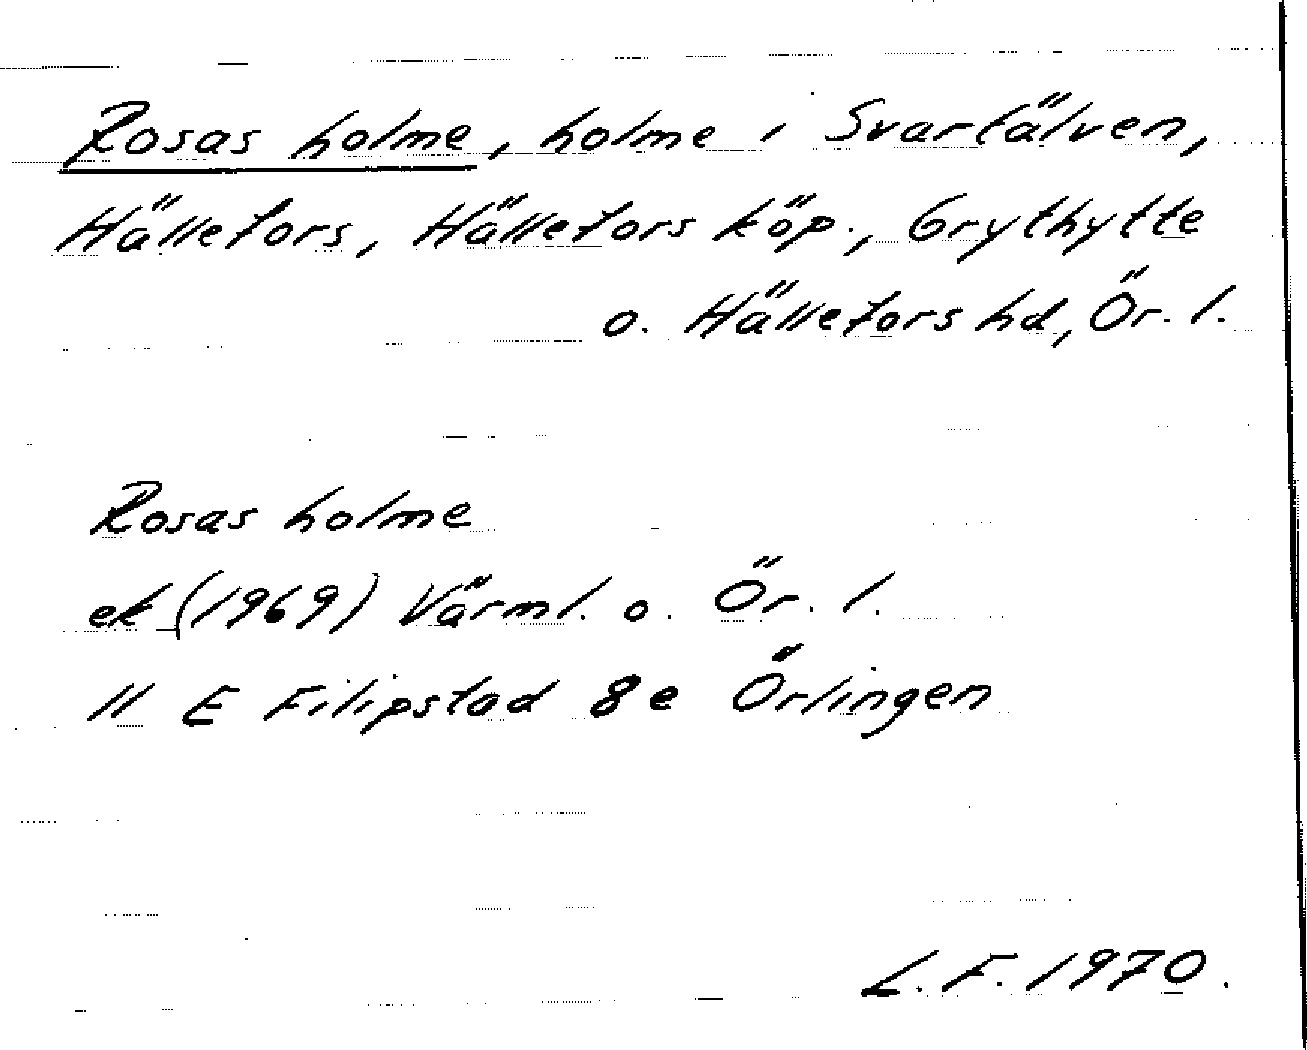 Rosas holme, holme i Svartälven,
Hällefors, Hällefors köp., Grythytte
o. Hällefors hd, Ör. l.
Rosas holme
ek (1969) Värml. o. Ör. l.
11 E Filipstad 8e Örlingen
L.F. 1970.